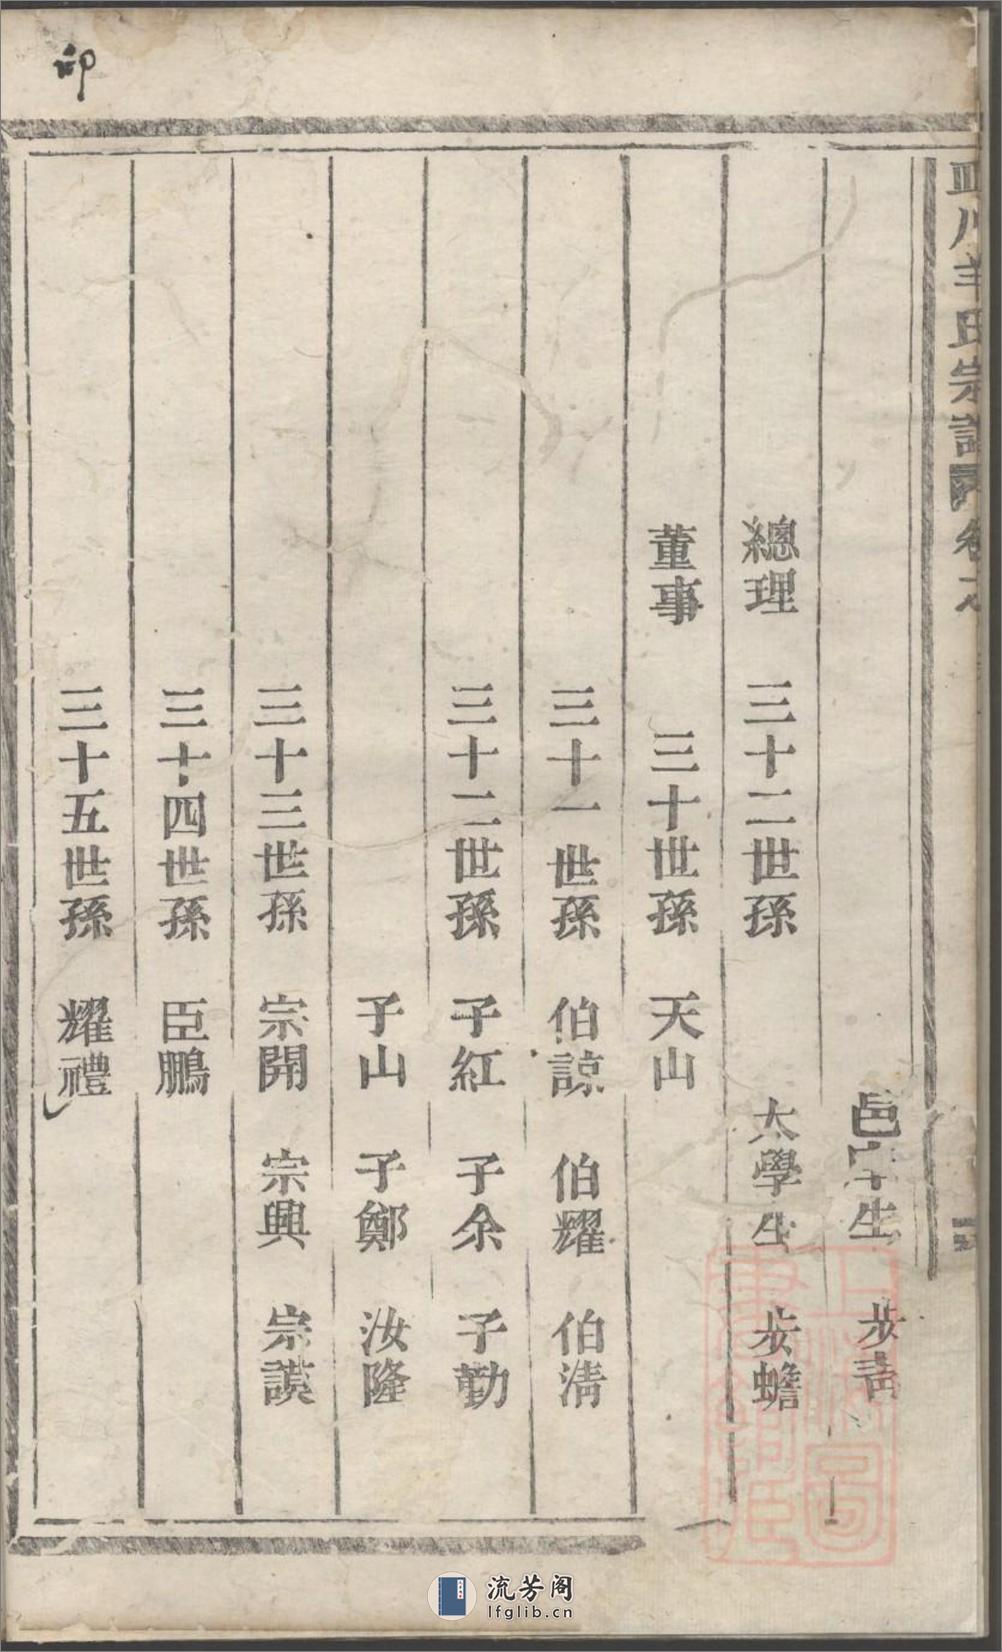 邑庠生 步青
總理 三十二世孫 太學生 步蟾
董事 三十世孫 天山
三十一世孫 伯諒 伯耀 伯清
三十二世孫 子紅 子余 子勤
子山 子鄭 汝隆
三十三世孫 宗開 宗興 宗謨
三十四世孫 臣鵬
三十五世孫 耀禮
川羊氏宗譜 卷之
上海圖書館藏
流芳阁
lfglib.cn